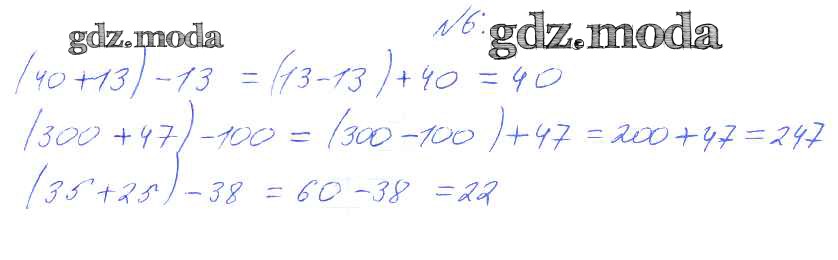 №6:
gdz.moda gdz.moda
(40+13)-13 = (13-13)+40 = 40
(300+47)-100 = (300-100)+47 = 200+47 = 247
(35+25)-38 = 60-38 = 22